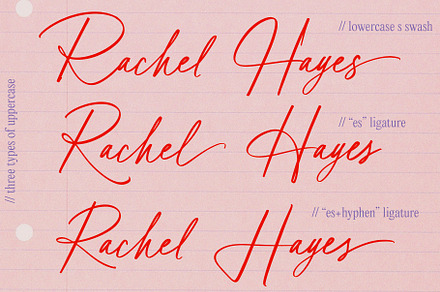 // lowercase s swash
Rachel Hayes
// three types of uppercase
// "es" ligature
Rachel Hayes
// "es+hyphen" ligature
Rachel Hayes